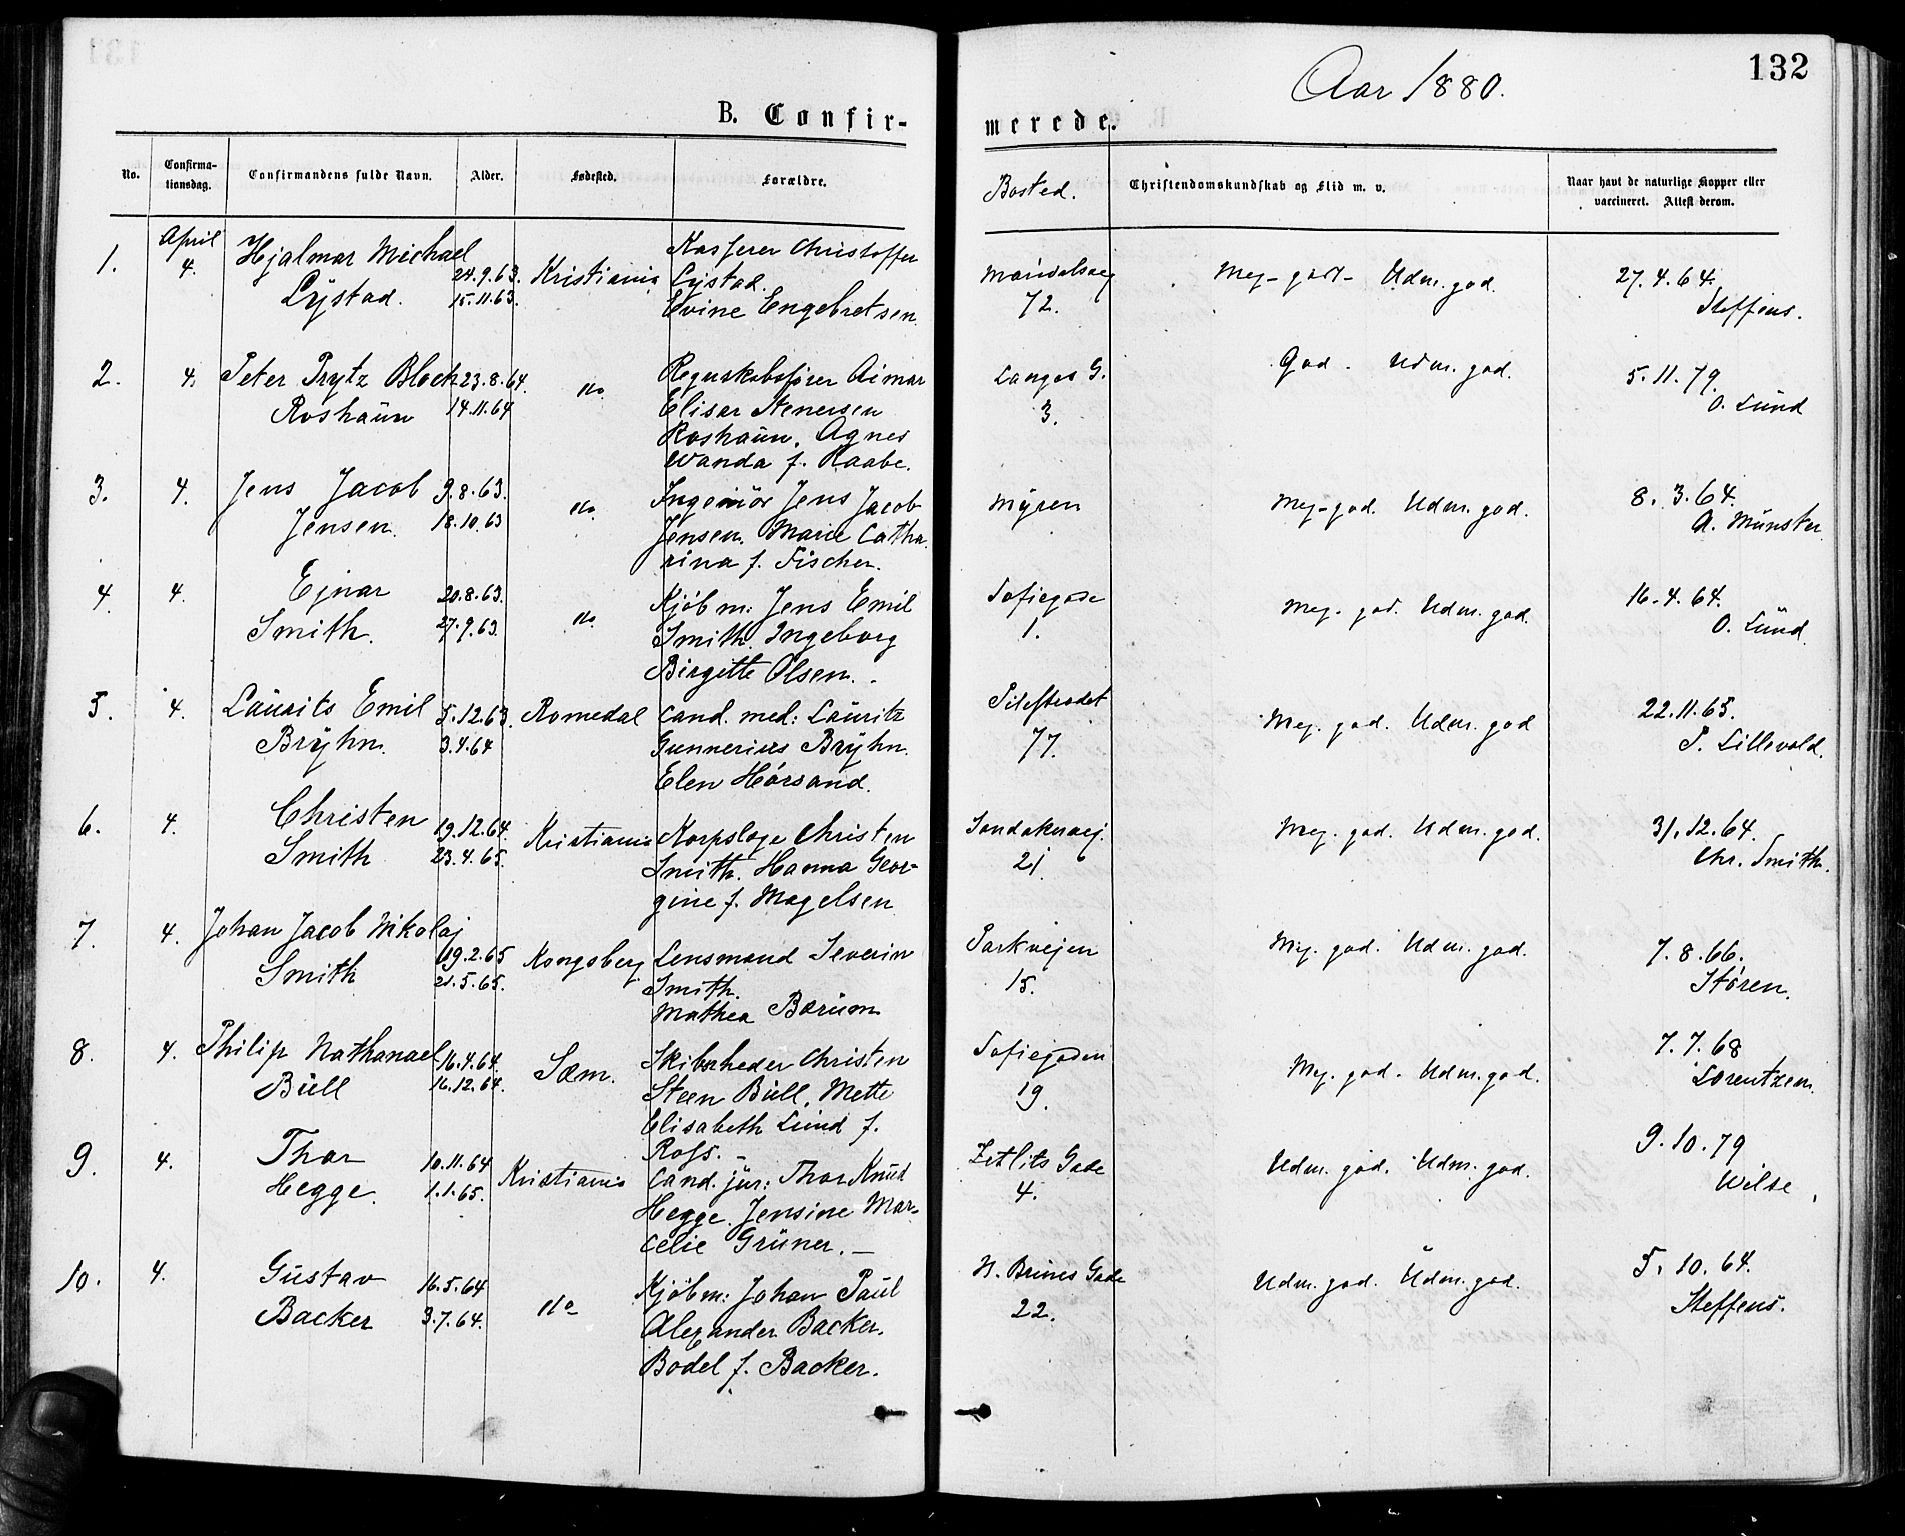 132
Aar 1880.
B. Confir-
merede.
No.
Confirma-
tionsdag.
Confirmandens fulde Navn.
Alder.
Fødested.
Forældre.
Bosted.
Christendomskundskab og Flid m. v.
Naar havt de naturlige Kopper eller
vaccineret. Attest derom.
1.
April
4.
Hjalmar Michael
Lystad.
24.9.63.
15.11.63.
Kristiania
Kasserer Christoffer
Lystad.
Evine Engebretsen
Maridalsvej
72.
Meg. godt - Udm. god.
27.4.64.
Steffens.
2.
4.
Peter Prytz Bloch
Roshauw
23.8.64.
14.11.64
do
Regnskabsfører Aimar
Elisar Stenersen
Roshauw. Agnes
Wanda f. Raabe.
Langes G.
3.
God. Udm. god.
5.11.79.
O. Lund
3.
4.
Jens Jacob
Jensen.
9.8.63.
18.10.63
do
Ingeniör Jens Jacob
Jensen. Marie Catha
rina f. Fischer.
Myren
Meg. god. Udm. god.
8.3.64.
A. Münster
4.
4.
Ejnar
Smith.
20.8.63.
27.9.63.
do
Kjøbm: Jens Emil
Smith. Ingeborg
Birgitte Olsen.
Sofiegade
1.
Meg. god. Udm. god.
16.4.64.
O. Lund
5.
4.
Laurits Emil
Bryhn.
5.12.63.
3.4.64
Romedal
Cand. med: Lauritz
Gunnerius Bryhn.
Elen Hørsand.
Pilestredet
77.
Meg. god. Udm. god
22.11.65.
P. Lillevold.
6.
4.
Christen
Smith
19.12.64.
23.4.65.
Kristiania
Korpslæge Christen
Smith. Hanna Geor-
gine f. Magelsen
Sandakervej.
21.
Meg. god. Udm. god.
31.12.64.
Chr. Smith.
7.
4.
Johan Jacob Nikolaj
Smith
19.2.65
21.5.65.
Kongsberg
Lensmand Severin
Smith.
Mathea Bærum
Parkvejen
15.
Meg. god. Udm. god.
7.8.66.
Støren.
8.
4.
Philip Nathanael
Bull
16.4.64.
16.12.64.
Sæm.
Skibsrheder Christen
Steen Bull, Mette
Elisabeth Lund f.
Ross. -
Sofiegaden
19.
Meg. god. Udm. god.
7.7.68
Lorentzen.
9.
4.
Thor
Hegge.
10.11.64
1.1.65.
Kristiania
Cand. jur: Thor Knud
Hegge. Jensine Mar-
celie Grüner. -
Zetlits Gade
4.
Udm. god. Udm. god.
9.10.79
Wilse
10.
4.
Gustav
Backer
16.5.64
3.7.64.
do
Kjøbm: Johan Paul
Alexander Backer.
Bodel f. Backer.
N. Bruns Gade
22.
Udm. god. Udm. god.
5.10.64.
Steffens.